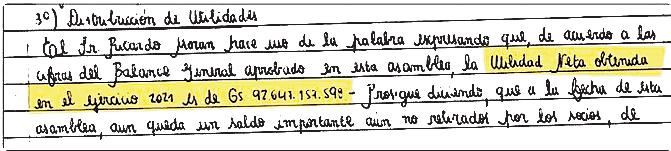 3º) Distribucción de Utilidades
El Sr. Ricardo Moran hace uso de la palabra expresando que, de acuerdo a las
cifras del Balance General aprobado en esta asamblea, la Utilidad Neta obtenida
en el ejercicio 2021 es de Gs 92.647.152.598 - Prosigue diciendo, que a la fecha de esta
asamblea, aun queda un saldo importante aún no retirados por los socios, de